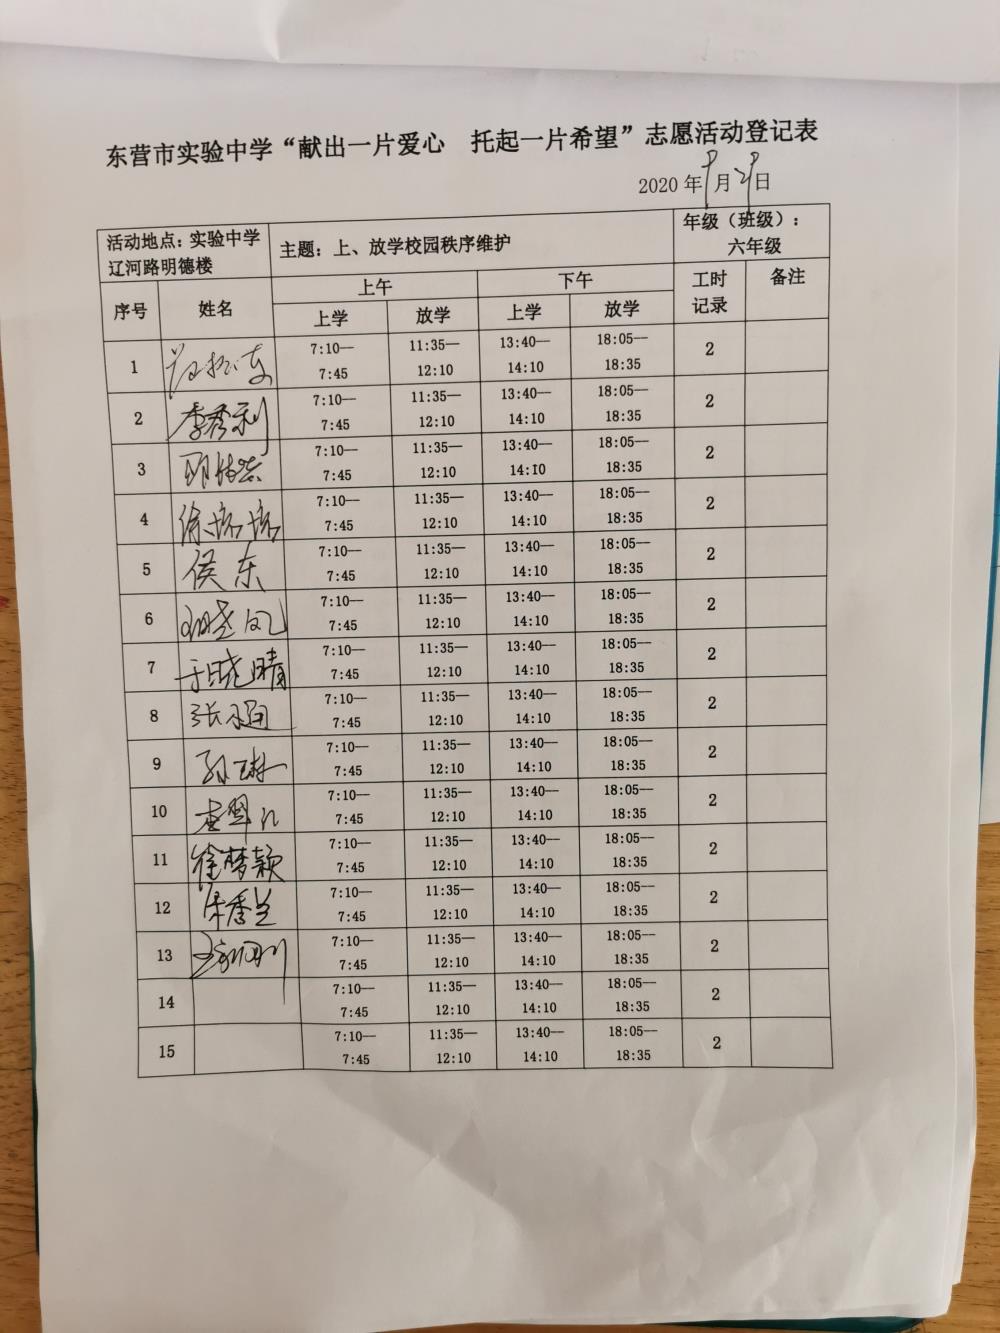 东营市实验中学“献出一片爱心 托起一片希望”志愿活动登记表
2020年9月21日
活动地点：实验中学 主题：上、放学校园秩序维护 年级（班级）：
辽河路明德楼 六年级
序号 姓名 上午 下午 工时 备注
上学 放学 上学 放学 记录
1 7:10— 11:35— 13:40— 18:05— 2
7:45 12:10 14:10 18:35
2 李秀利 7:10— 11:35— 13:40— 18:05— 2
7:45 12:10 14:10 18:35
3 7:10— 11:35— 13:40— 18:05— 2
7:45 12:10 14:10 18:35
4 徐培培 7:10— 11:35— 13:40— 18:05— 2
7:45 12:10 14:10 18:35
5 侯东 7:10— 11:35— 13:40— 18:05— 2
7:45 12:10 14:10 18:35
6 7:10— 11:35— 13:40— 18:05— 2
7:45 12:10 14:10 18:35
7 于晓晴 7:10— 11:35— 13:40— 18:05— 2
7:45 12:10 14:10 18:35
8 7:10— 11:35— 13:40— 18:05— 2
7:45 12:10 14:10 18:35
9 孙琳 7:10— 11:35— 13:40— 18:05— 2
7:45 12:10 14:10 18:35
10 7:10— 11:35— 13:40— 18:05— 2
7:45 12:10 14:10 18:35
11 徐梦颖 7:10— 11:35— 13:40— 18:05— 2
7:45 12:10 14:10 18:35
12 7:10— 11:35— 13:40— 18:05— 2
7:45 12:10 14:10 18:35
13 7:10— 11:35— 13:40— 18:05— 2
7:45 12:10 14:10 18:35
14 7:10— 11:35— 13:40— 18:05— 2
7:45 12:10 14:10 18:35
15 7:10— 11:35— 13:40— 18:05— 2
7:45 12:10 14:10 18:35